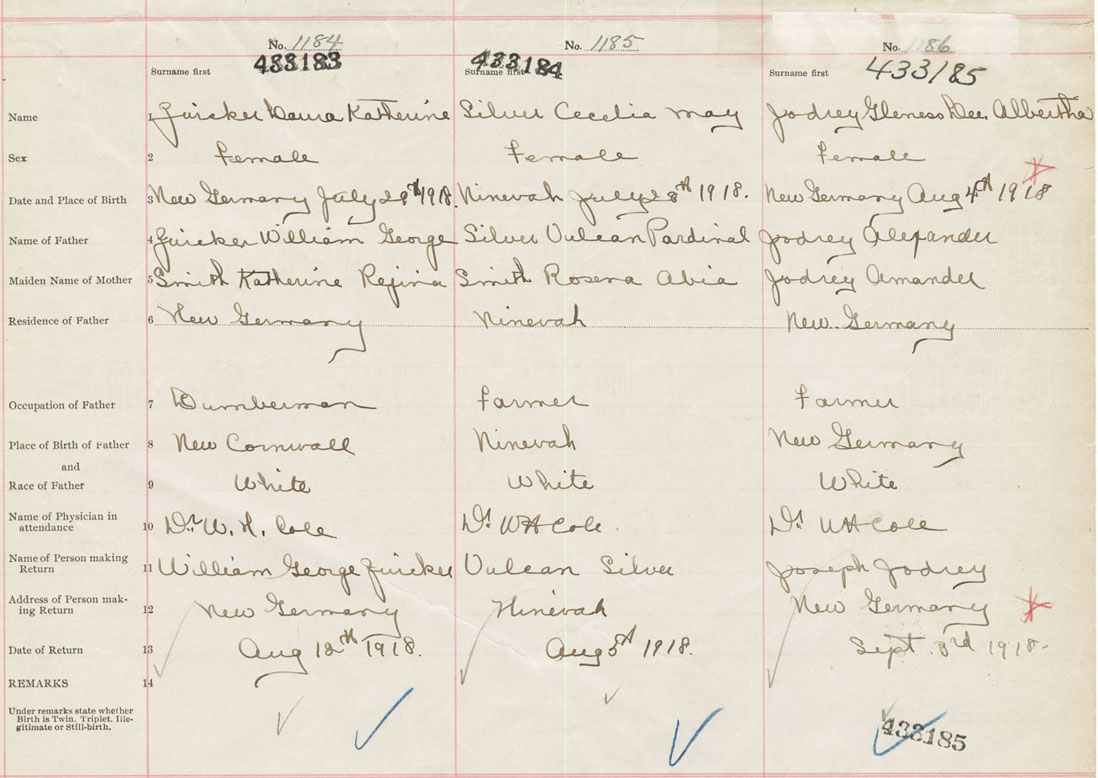 No. 1184 No. 1185 No. 1186
433183 433184 433185
Surname first Surname first Surname first
Name 1 Zuicker Laura Katherine Silver Cecelia may Jodrey Gleness Dee, Albertha
Sex 2 Female Female Female
Date and Place of Birth 3 New Germany July 29th 1918. Ninevah July 28th 1918. New Germany Aug 4th 1918
Name of Father 4 Zuicker William George Silver Vulcan Pardinal Jodrey Alexander
Maiden Name of Mother 5 Smith Katherine Regina Smith Rosena Abia Jodrey Amander
Residence of Father 6 New Germany Ninevah New Germany
Occupation of Father 7 Lumberman Farmer Farmer
Place of Birth of Father 8 New Cornwall Ninevah New Germany
and
Race of Father 9 White White White
Name of Physician in
attendance 10 Dr. W. H. Cole Dr WH Cole. Dr WH Cole
Name of Person making
Return 11 William George Zuicker Vulcan Silver Joseph Jodrey
Address of Person mak-
ing Return 12 New Germany Ninevah New Germany
Date of Return 13 Aug 12th 1918. Aug 5th 1918. Sept. 3rd 1918.
REMARKS 14
Under remarks state whether
Birth is Twin, Triplet, Ille-
gitimate or Still-birth.
433185